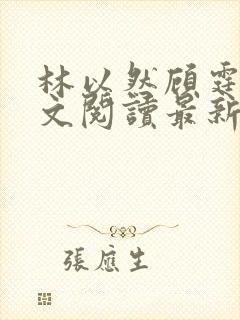 林以然顾霆
文閱讀最新
張應生